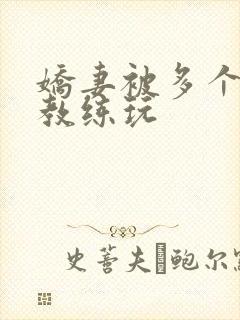 娇妻被多个
教练玩
史蒈夫 鲍尔